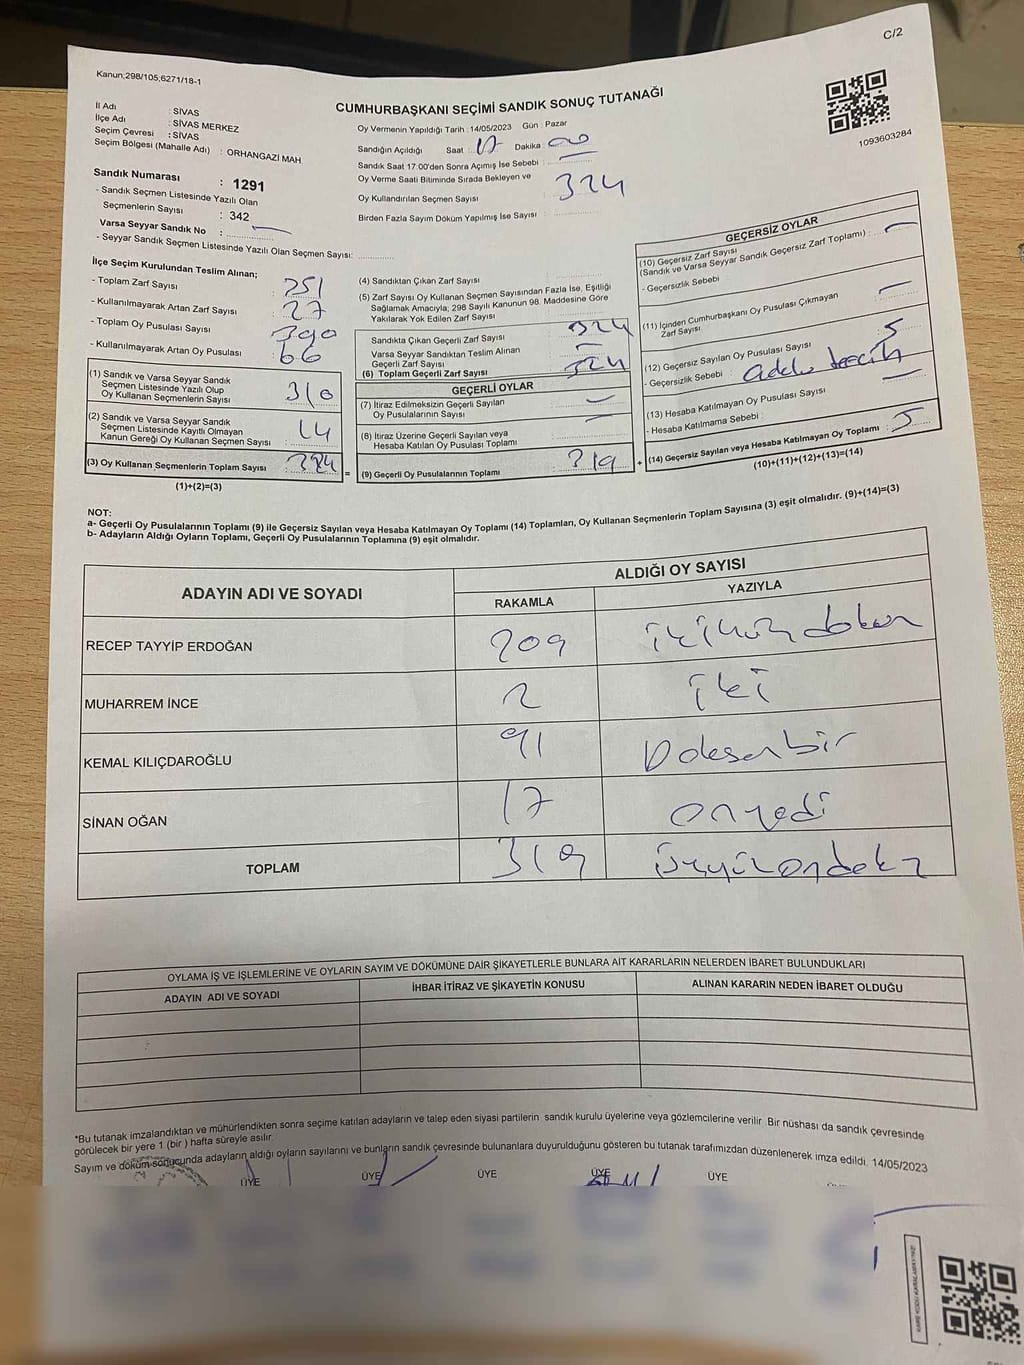 C/2
Kanun;298/105;6271/18-1
CUMHURBAŞKANI SEÇİMİ SANDIK SONUÇ TUTANAĞI
İl Adı : SİVAS
İlçe Adı : SİVAS MERKEZ
Seçim Çevresi : SİVAS
Seçim Bölgesi (Mahalle Adı) : ORHANGAZİ MAH.
Oy Vermenin Yapıldığı Tarih : 14/05/2023 Gün : Pazar
Sandığın Açıldığı Saat : 17 Dakika : 00
Sandık Saat 17:00'den Sonra Açımış İse Sebebi :
Oy Verme Saati Bitiminde Sırada Bekleyen ve
Oy Kullandırılan Seçmen Sayısı : 324
Birden Fazla Sayım Döküm Yapılmış İse Sayısı :
1093603284
Sandık Numarası : 1291
- Sandık Seçmen Listesinde Yazılı Olan
Seçmenlerin Sayısı : 342
Varsa Seyyar Sandık No :
- Seyyar Sandık Seçmen Listesinde Yazılı Olan Seçmen Sayısı:
İlçe Seçim Kurulundan Teslim Alınan;
- Toplam Zarf Sayısı : 351
- Kullanılmayarak Artan Zarf Sayısı : 27
- Toplam Oy Pusulası Sayısı : 390
- Kullanılmayarak Artan Oy Pusulası : 66
(1) Sandık ve Varsa Seyyar Sandık
Seçmen Listesinde Yazılı Olup
Oy Kullanan Seçmenlerin Sayısı : 310
(2) Sandık ve Varsa Seyyar Sandık
Seçmen Listesinde Kayıtlı Olmayan
Kanun Gereği Oy Kullanan Seçmen Sayısı : 14
(3) Oy Kullanan Seçmenlerin Toplam Sayısı : 324
(1)+(2)=(3)
(4) Sandıktan Çıkan Zarf Sayısı :
(5) Zarf Sayısı Oy Kullanan Seçmen Sayısından Fazla İse, Eşitliği
Sağlamak Amacıyla; 298 Sayılı Kanunun 98. Maddesine Göre
Yakılarak Yok Edilen Zarf Sayısı
Sandıkta Çıkan Geçerli Zarf Sayısı : 324
Varsa Seyyar Sandıktan Teslim Alınan
Geçerli Zarf Sayısı
(6) Toplam Geçerli Zarf Sayısı : 324
GEÇERLİ OYLAR
(7) İtiraz Edilmeksizin Geçerli Sayılan
Oy Pusulalarının Sayısı :
(8) İtiraz Üzerine Geçerli Sayılan veya
Hesaba Katılan Oy Pusulası Toplamı :
= (9) Geçerli Oy Pusulalarının Toplamı : 319
GEÇERSİZ OYLAR
(10) Geçersiz Zarf Sayısı
(Sandık ve Varsa Seyyar Sandık Geçersiz Zarf Toplamı) :
- Geçersizlik Sebebi
(11) İçinden Cumhurbaşkanı Oy Pusulası Çıkmayan
Zarf Sayısı
(12) Geçersiz Sayılan Oy Pusulası Sayısı : 5
- Geçersizlik Sebebi :
(13) Hesaba Katılmayan Oy Pusulası Sayısı
- Hesaba Katılmama Sebebi :
+ (14) Geçersiz Sayılan veya Hesaba Katılmayan Oy Toplamı : 5
(10)+(11)+(12)+(13)=(14)
NOT:
a- Geçerli Oy Pusulalarının Toplamı (9) ile Geçersiz Sayılan veya Hesaba Katılmayan Oy Toplamı (14) Toplamları, Oy Kullanan Seçmenlerin Toplam Sayısına (3) eşit olmalıdır. (9)+(14)=(3)
b- Adayların Aldığı Oyların Toplamı, Geçerli Oy Pusulalarının Toplamına (9) eşit olmalıdır.
ADAYIN ADI VE SOYADI ALDIĞI OY SAYISI
RAKAMLA YAZIYLA
RECEP TAYYİP ERDOĞAN 209 ikiyüzdokuz
MUHARREM İNCE 2 iki
KEMAL KILIÇDAROĞLU 91 Doksanbir
SİNAN OĞAN 17 onyedi
TOPLAM 319 üçyüzondokuz
OYLAMA İŞ VE İŞLEMLERİNE VE OYLARIN SAYIM VE DÖKÜMÜNE DAİR ŞİKAYETLERLE BUNLARA AİT KARARLARIN NELERDEN İBARET BULUNDUKLARI
ADAYIN ADI VE SOYADI İHBAR İTİRAZ VE ŞİKAYETİN KONUSU ALINAN KARARIN NEDEN İBARET OLDUĞU
*Bu tutanak imzalandıktan ve mühürlendikten sonra seçime katılan adayların ve talep eden siyasi partilerin sandık kurulu üyelerine veya gözlemcilerine verilir. Bir nüshası da sandık çevresinde
görülecek bir yere 1 (bir ) hafta süreyle asılır.
Sayım ve döküm sonucunda adayların aldığı oyların sayılarını ve bunların sandık çevresinde bulunanlara duyurulduğunu gösteren bu tutanak tarafımızdan düzenlenerek imza edildi. 14/05/2023
ÜYE ÜYE ÜYE ÜYE ÜYE